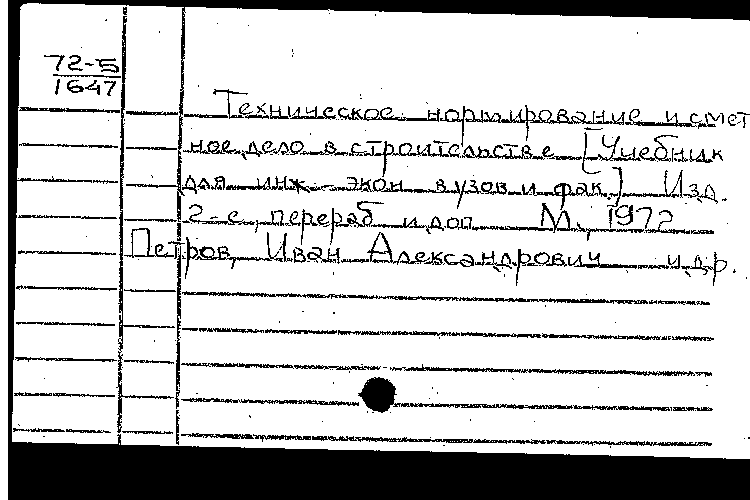 72-5
1647
Техническое нормирование и смет
ное дело в строительстве [Учебник
для инж.-экон. вузов и фак.] Изд.
2-е, перераб. и доп. М., 1972
Петров, Иван Александрович и др.